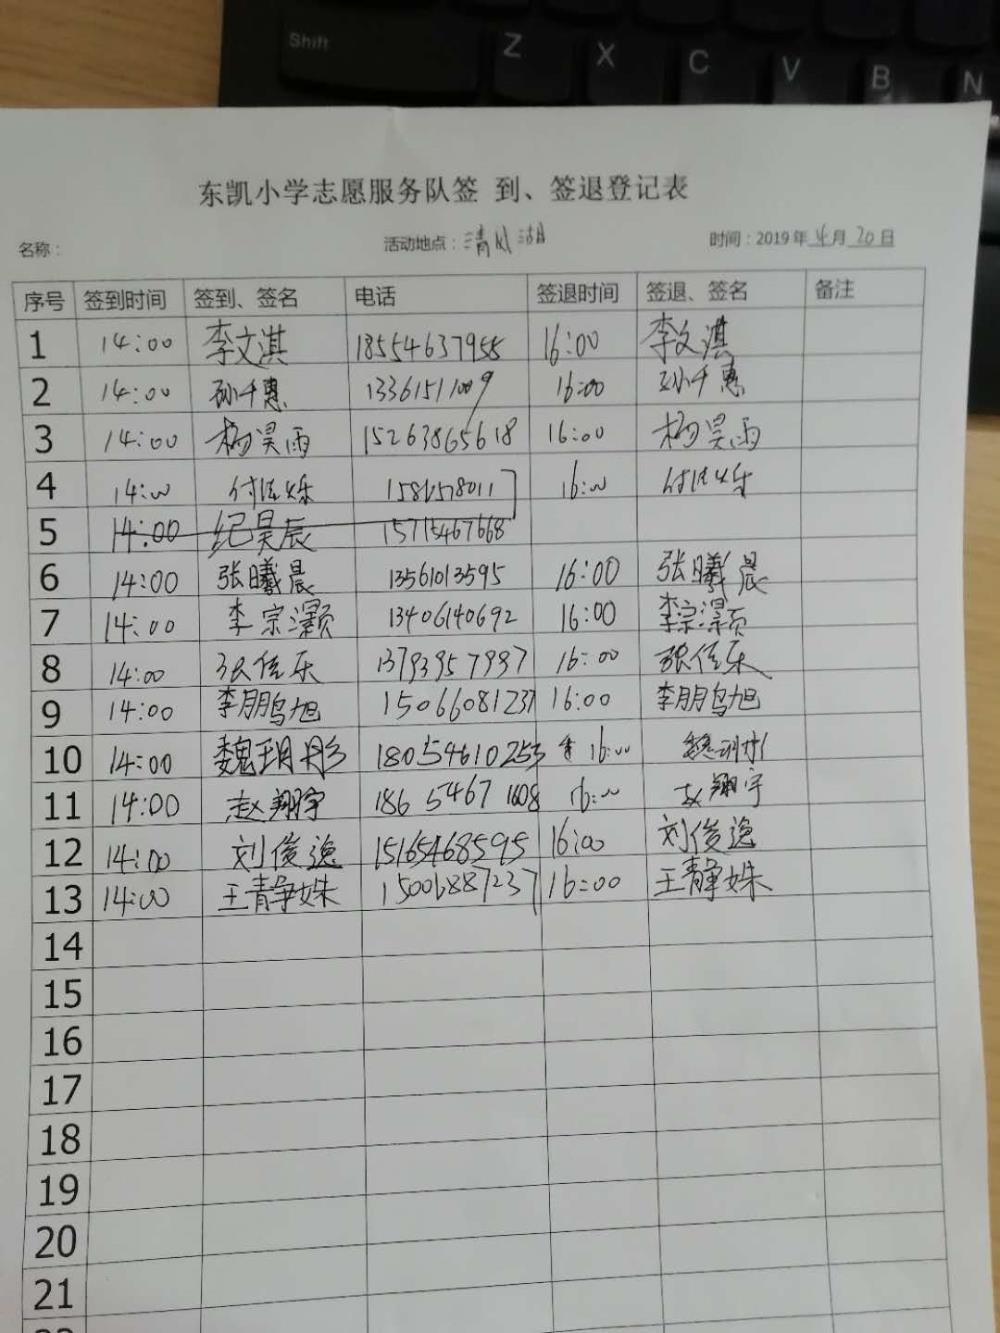 Shift Z X C V B N
东凯小学志愿服务队签 到、签退登记表
名称： 活动地点：清风湖 时间：2019年4月20日
序号 签到时间 签到、签名 电话 签退时间 签退、签名 备注
1 14:00 李文淇 18554637955 16:00 李文淇
2 14:00 孙千惠 13361511009 16:00 孙千惠
3 14:00 杨昊雨 15263865618 16:00 杨昊雨
4 14:00 16:00
5 14:00 纪昊辰 15715467668
6 14:00 张曦晨 13561013595 16:00 张曦晨
7 14:00 李宗灏 13406140692 16:00 李宗灏
8 14:00 张佳乐 13793957997 16:00 张佳乐
9 14:00 李鹏旭 15066081237 16:00 李鹏旭
10 14:00 魏玥彤 18054610253 16:00
11 14:00 赵翔宇 186 5467 1608 16:00 赵翔宇
12 14:00 刘俊逸 15165468595 16:00 刘俊逸
13 14:00 王静姝 15006887237 16:00 王静姝
14
15
16
17
18
19
20
21